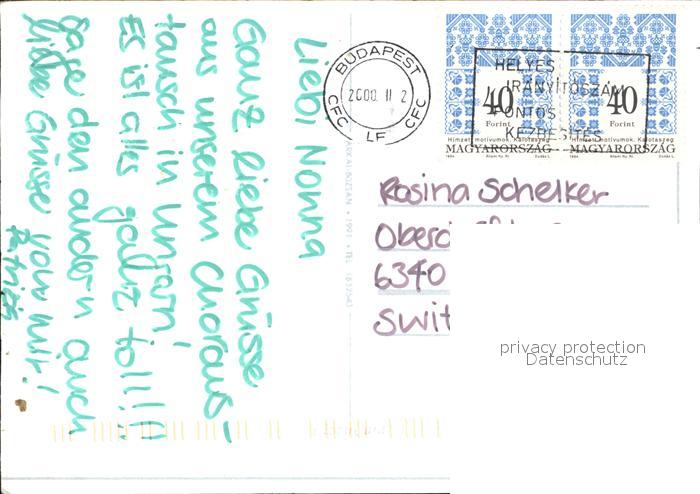 Liebi Nonna
Ganz liebe Grüsse
aus unserem Choraus-
tausch in Ungarn!
Es ist alles ganz toll!!!!
Sage den andern auch
liebe Grüsse von mir!
BUDAPEST
2000. 11 2
CFC LF CFC
HELYES
IRÁNYÍTÓSZÁM
PONTOS
KÉZBESÍTÉS
40
Forint
Hímzett motívumok. Kalotaszeg
MAGYARORSZÁG
40
Forint
Hímzett motívumok. Kalotaszeg
MAGYARORSZÁG
Rosina Schelker
6340
privacy protection
Datenschutz